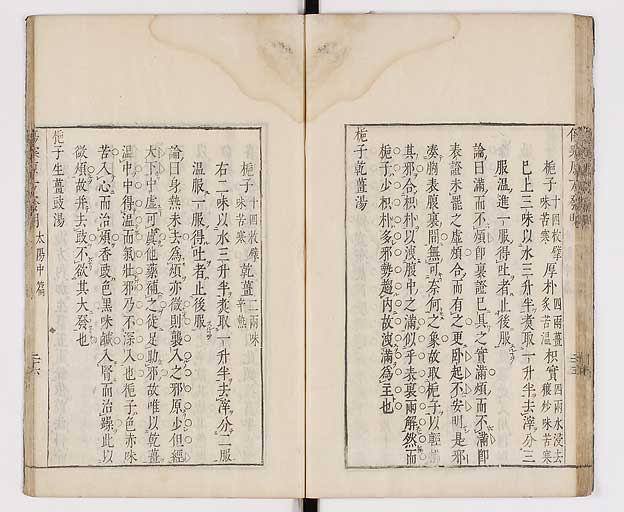 梔子十四枚擘味苦寒 厚朴四兩薑炙苦温 枳實四兩水浸去穰炒味苦寒
巳上三味以水三升半煑取一升半去滓分二
服温進一服得吐者止後服
論曰滿而不煩即裏證巳具之實滿煩而不滿即
表證未罷之虛煩合而有之更卧起不安明是邪
湊胸表腹裏間無可奈何之象故取梔子以輕
其邪合枳朴以洩腹中之滿似乎表裏兩解然而
梔子少枳朴多邪勢趨内故洩滿爲主也
梔子乾薑湯
梔子十四枚擘味苦寒 乾薑二兩味辛熱
右二味以水三升半煑取一升半去滓分二服
温服一服得吐者止後服
論曰身熱未去爲煩亦微則襲入之邪原少但經
大下中虛可眞他藥補之徒足助邪故唯以乾薑
温中中得温而氣壯邪乃不深入也梔子色赤味
苦入心而治煩香豉色黑味鹹入腎而治躁此以
微煩故并去豉不欲其大發也
梔子生薑豉湯
太陽中篇
二十六